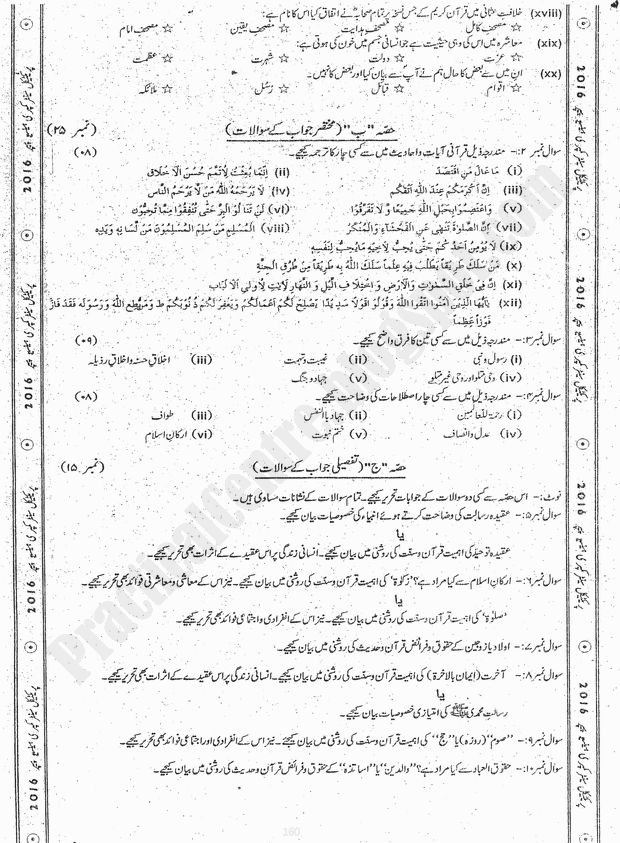 (xviii) خلافتِ عثمانی میں قرآن کریم کے جس نسخہ پر تمام صحابہؓ نے اتفاق کیا اس کا نام ہے:
☆ مصحفِ کامل ☆ مصحفِ ہدایت ☆ مصحفِ یقین ☆ مصحفِ امام
(xix) معاشرہ میں اس کی وہی حیثیت ہے جو انسانی جسم میں خون کی ہوتی ہے:
☆ عزت ☆ دولت ☆ شہرت ☆ عظمت
(xx) ان میں سے بعض کا حال ہم نے آپؐ سے بیان کیا اور بعض کا نہیں۔
☆ اقوام ☆ قبائل ☆ رسُل ☆ ملائکہ
حصّہ "ب" (مختصر جواب کے سوالات) (نمبر ۲۵)
سوال نمبر ۲:- مندرجہ ذیل قرآنی آیات و احادیث میں سے کسی چار کا ترجمہ کیجیے۔ (۰۸)
(i) مَا عَالَ مَنِ اقْتَصَدَ (ii) اِنَّمَا بُعِثْتُ لِاُتَمِّمَ حُسْنَ الْاَخْلَاقِ
(iii) اِنَّ اَكْرَمَكُمْ عِنْدَ اللّٰهِ اَتْقٰكُمْ (iv) لَا يَرْحَمُهُ اللّٰهُ مَنْ لَّا يَرْحَمُ النَّاسَ
(v) وَاعْتَصِمُوْا بِحَبْلِ اللّٰهِ جَمِيْعًا وَّلَا تَفَرَّقُوْا (vi) لَنْ تَنَالُوا الْبِرَّ حَتّٰى تُنْفِقُوْا مِمَّا تُحِبُّوْنَ
(vii) اِنَّ الصَّلٰوةَ تَنْهٰى عَنِ الْفَحْشَآءِ وَالْمُنْكَرِ (viii) اَلْمُسْلِمُ مَنْ سَلِمَ الْمُسْلِمُوْنَ مِنْ لِّسَانِهٖ وَيَدِهٖ
(ix) لَا يُؤْمِنُ اَحَدُكُمْ حَتّٰى يُحِبَّ لِاَخِيْهِ مَا يُحِبُّ لِنَفْسِهٖ
(x) مَنْ سَلَكَ طَرِيْقًا يَطْلُبُ فِيْهِ عِلْمًا سَلَكَ اللّٰهُ بِهٖ طَرِيْقًا مِّنْ طُرُقِ الْجَنَّةِ
(xi) اِنَّ فِىْ خَلْقِ السَّمٰوٰتِ وَالْاَرْضِ وَاخْتِلَافِ الَّيْلِ وَالنَّهَارِ لَاٰيٰتٍ لِّاُولِى الْاَلْبَابِ
(xii) يٰۤاَيُّهَا الَّذِيْنَ اٰمَنُوا اتَّقُوا اللّٰهَ وَقُوْلُوْا قَوْلًا سَدِيْدًا يُّصْلِحْ لَكُمْ اَعْمَالَكُمْ وَيَغْفِرْ لَكُمْ ذُنُوْبَكُمْ ط وَمَنْ يُّطِعِ اللّٰهَ وَرَسُوْلَهٗ فَقَدْ فَازَ
فَوْزًا عَظِيْمًا
سوال نمبر ۳:- مندرجہ ذیل میں سے کسی تین کا فرق واضح کیجیے۔ (۰۹)
(i) رسول و نبی (ii) غیبت و تہمت (iii) اخلاقِ حسنہ و اخلاقِ رذیلہ
(iv) وحی متلو اور وحی غیر متلو (v) جہاد و جنگ
سوال نمبر ۴:- مندرجہ ذیل میں سے کسی چار اصطلاحات کی وضاحت کیجیے۔ (۰۸)
(i) رحمۃ للعالمین (ii) جہاد بالنفس (iii) طواف
(iv) عدل و انصاف (v) ختمِ نبوت (vi) ارکانِ اسلام
حصّہ "ج" (تفصیلی جواب کے سوالات) (نمبر ۱۵)
نوٹ:- اس حصّہ سے کسی دو سوالات کے جوابات تحریر کیجیے۔ تمام سوالات کے نشانات مساوی ہیں۔
سوال نمبر ۵:- عقیدہ رسالت کی وضاحت کرتے ہوئے انبیاء کی خصوصیات بیان کیجیے۔
یا
عقیدہ توحید کی اہمیت قرآن و سنت کی روشنی میں بیان کیجیے۔ انسانی زندگی پر اس عقیدے کے اثرات بھی تحریر کیجیے۔
سوال نمبر ۶:- ارکانِ اسلام سے کیا مراد ہے؟ "زکوٰۃ" کی اہمیت قرآن و سنت کی روشنی میں بیان کیجیے۔ نیز اس کے معاشی و معاشرتی فوائد بھی تحریر کیجیے۔
یا
'صلوٰۃ' کی اہمیت قرآن و سنت کی روشنی میں بیان کیجیے۔ نیز اس کے انفرادی و اجتماعی فوائد بھی تحریر کیجیے۔
سوال نمبر ۷:- اولاد یا زوجین کے حقوق و فرائض قرآن و حدیث کی روشنی میں بیان کیجیے۔
سوال نمبر ۸:- آخرت (ایمان بالاخرۃ) کی اہمیت قرآن و سنت کی روشنی میں بیان کیجیے۔ انسانی زندگی پر اس عقیدے کے اثرات بھی تحریر کیجیے۔
یا
رسالتِ محمدی ﷺ کی امتیازی خصوصیات بیان کیجیے۔
سوال نمبر ۹:- "صوم" (روزہ) یا "حج" کی اہمیت قرآن و سنت کی روشنی میں بیان کیجیے۔ نیز اس کے انفرادی اور اجتماعی فوائد بھی تحریر کیجیے۔
سوال نمبر ۱۰:- حقوق العباد سے کیا مراد ہے؟ "والدین" یا "اساتذہ" کے حقوق و فرائض قرآن و حدیث کی روشنی میں بیان کیجیے۔
160
2016
2016
2016
2016
2016
2016
2016
2016